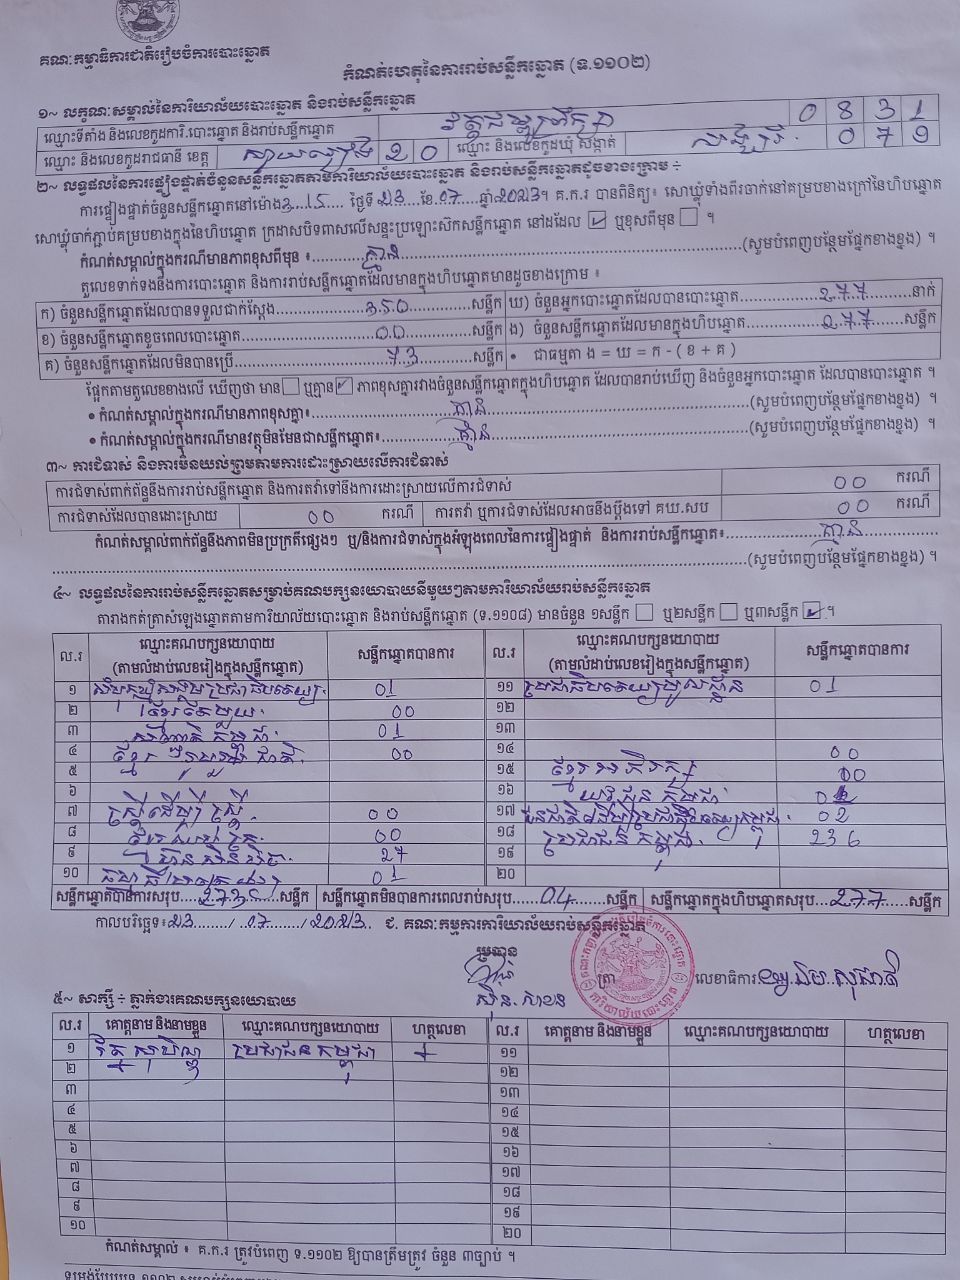 គណៈកម្មាធិការជាតិរៀបចំការបោះឆ្នោត
កំណត់ហេតុនៃការរាប់សន្លឹកឆ្នោត (ទ.១១០២)
១~ លក្ខណៈសម្គាល់នៃការិយាល័យបោះឆ្នោត និងរាប់សន្លឹកឆ្នោត
ឈ្មោះទីតាំង និងលេខកូដការិ.បោះឆ្នោត និងរាប់សន្លឹកឆ្នោត 0 8 3 1
ឈ្មោះ និងលេខកូដរាជធានី ខេត្ត ស្វាយរៀង 2 0 ឈ្មោះ និងលេខកូដឃុំ សង្កាត់ 0 7 9
២~ លទ្ធផលនៃការផ្ទៀងផ្ទាត់ចំនួនសន្លឹកឆ្នោតតាមការិយាល័យបោះឆ្នោត និងរាប់សន្លឹកឆ្នោតដូចខាងក្រោម ÷
ការផ្ទៀងផ្ទាត់ចំនួនសន្លឹកឆ្នោតនៅម៉ោង 3.15 ថ្ងៃទី 23 ខែ 07 ឆ្នាំ 2023។ គ.ក.រ បានពិនិត្យ៖ សោឃ្លុំទាំងពីរចាក់នៅគម្របខាងក្រៅនៃហិបឆ្នោត
សោឃ្លុំចាក់ភ្ជាប់គម្របខាងក្នុងនៃហិបឆ្នោត ក្រដាសបិទពាសលើសន្ទះប្រឡោះស៊កសន្លឹកឆ្នោត នៅដដែល ☑ ឬខុសពីមុន ☐ ។
កំណត់សម្គាល់ក្នុងករណីមានភាពខុសពីមុន ៖ គ្មាន (សូមបំពេញបន្ថែមផ្នែកខាងខ្នង) ។
តួលេខទាក់ទងនឹងការបោះឆ្នោត និងការរាប់សន្លឹកឆ្នោតដែលមានក្នុងហិបឆ្នោតមានដូចខាងក្រោម ៖
ក) ចំនួនសន្លឹកឆ្នោតដែលបានទទួលជាក់ស្តែង 350 សន្លឹក ឃ) ចំនួនអ្នកបោះឆ្នោតដែលបានបោះឆ្នោត 277 នាក់
ខ) ចំនួនសន្លឹកឆ្នោតខូចពេលបោះឆ្នោត 00 សន្លឹក ង) ចំនួនសន្លឹកឆ្នោតដែលមានក្នុងហិបឆ្នោត 277 សន្លឹក
គ) ចំនួនសន្លឹកឆ្នោតដែលមិនបានប្រើ 73 សន្លឹក • ជាធម្មតា ង = ឃ = ក - ( ខ + គ )
ផ្អែកតាមតួលេខខាងលើ ឃើញថា មាន ☐ ឬគ្មាន ☑ ភាពខុសគ្នារវាងចំនួនសន្លឹកឆ្នោតក្នុងហិបឆ្នោត ដែលបានរាប់ឃើញ និងចំនួនអ្នកបោះឆ្នោត ដែលបានបោះឆ្នោត ។
• កំណត់សម្គាល់ក្នុងករណីមានភាពខុសគ្នា៖ គ្មាន (សូមបំពេញបន្ថែមផ្នែកខាងខ្នង) ។
• កំណត់សម្គាល់ក្នុងករណីមានវត្ថុមិនមែនជាសន្លឹកឆ្នោត៖ គ្មាន (សូមបំពេញបន្ថែមផ្នែកខាងខ្នង) ។
៣~ ការជំទាស់ និងការមិនយល់ព្រមតាមការដោះស្រាយលើការជំទាស់
ការជំទាស់ពាក់ព័ន្ធនឹងការរាប់សន្លឹកឆ្នោត និងការតវ៉ាទៅនឹងការដោះស្រាយលើការជំទាស់ 00 ករណី
ការជំទាស់ដែលបានដោះស្រាយ 00 ករណី ការតវ៉ា ឬការជំទាស់ដែលអាចនឹងប្តឹងទៅ គឃ.សប 00 ករណី
កំណត់សម្គាល់ពាក់ព័ន្ធនឹងភាពមិនប្រក្រតីផ្សេងៗ ឬ/និងការជំទាស់ក្នុងអំឡុងពេលនៃការផ្ទៀងផ្ទាត់ និងការរាប់សន្លឹកឆ្នោត៖ គ្មាន
(សូមបំពេញបន្ថែមផ្នែកខាងខ្នង) ។
៤~ លទ្ធផលនៃការរាប់សន្លឹកឆ្នោតសម្រាប់គណបក្សនយោបាយនីមួយៗតាមការិយាល័យរាប់សន្លឹកឆ្នោត
តារាងកត់ត្រាសំឡេងឆ្នោតតាមការិយាល័យបោះឆ្នោត និងរាប់សន្លឹកឆ្នោត (ទ.១១០៨) មានចំនួន ១សន្លឹក ☐ ឬ២សន្លឹក ☐ ឬ៣សន្លឹក ☑ ។
ល.រ ឈ្មោះគណបក្សនយោបាយ (តាមលំដាប់លេខរៀងក្នុងសន្លឹកឆ្នោត) សន្លឹកឆ្នោតបានការ ល.រ ឈ្មោះគណបក្សនយោបាយ (តាមលំដាប់លេខរៀងក្នុងសន្លឹកឆ្នោត) សន្លឹកឆ្នោតបានការ
១ 01 ១១ ប្រជាធិបតេយ្យមូលដ្ឋាន 01
២ ខ្មែរតែមួយ 00 ១២
៣ សាមគ្គីជាតិ កម្ពុជា 01 ១៣
៤ ខ្មែររួបរួមជាតិ 00 ១៤ 00
៥ ១៥ ខ្មែរអភិរក្ស 00
៦ ១៦ យុវជន កម្ពុជា
៧ ស្ត្រីដើម្បីស្ត្រី 00 ១៧ 02
៨ 00 ១៨ ប្រជាជន កម្ពុជា 236
៩ 27 ១៩
១០ 01 ២០
សន្លឹកឆ្នោតបានការសរុប 273 សន្លឹក សន្លឹកឆ្នោតមិនបានការពេលរាប់សរុប 04 សន្លឹក សន្លឹកឆ្នោតក្នុងហិបឆ្នោតសរុប 277 សន្លឹក
កាលបរិច្ឆេទ៖ 23 / 07 / 2023 ជ. គណៈកម្មការការិយាល័យរាប់សន្លឹកឆ្នោត
ប្រធាន
ត្រា លេខាធិការ
៥~ សាក្សី ÷ ភ្នាក់ងារគណបក្សនយោបាយ
ល.រ គោត្តនាម និងនាមខ្លួន ឈ្មោះគណបក្សនយោបាយ ហត្ថលេខា ល.រ គោត្តនាម និងនាមខ្លួន ឈ្មោះគណបក្សនយោបាយ ហត្ថលេខា
១ ប្រជាជន កម្ពុជា ១១
២ ១២
៣ ១៣
៤ ១៤
៥ ១៥
៦ ១៦
៧ ១៧
៨ ១៨
៩ ១៩
១០ ២០
កំណត់សម្គាល់ ៖ គ.ក.រ ត្រូវបំពេញ ទ.១១០២ ឱ្យបានត្រឹមត្រូវ ចំនួន ៣ច្បាប់ ។